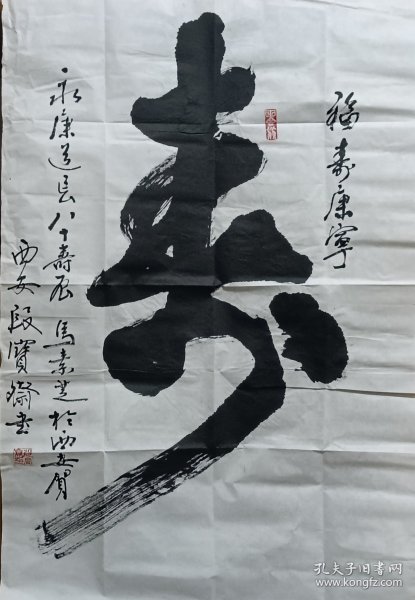 福寿康寧
寿
永康道长八十壽辰 馬素芝於西安賀
西安段寶齋書
孔夫子旧书网
www.kongfz.com